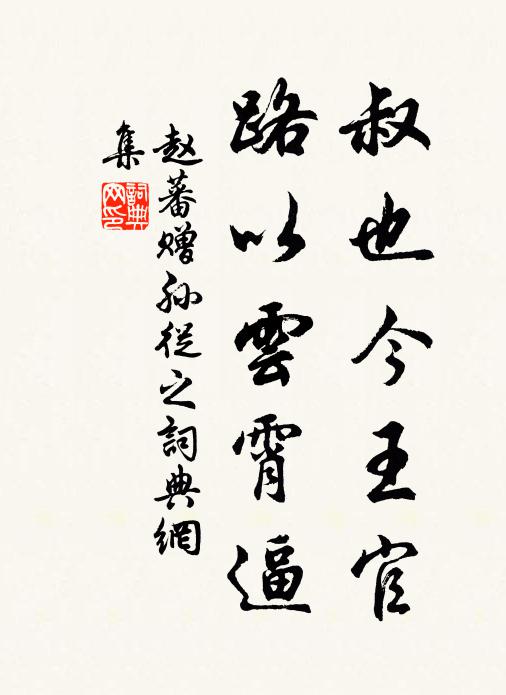 叔也今王官
路以雲霄逼
赵蕃赠孙從之詞典網
集
詞典
网印